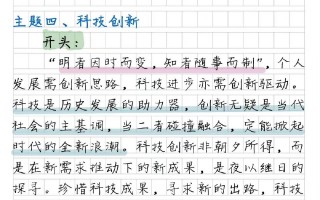 主题四、科技创新
开头：
“明者因时而变，知者随事而制”，个人
发展需创新思路，科技进步亦需创新驱动。
科技是历史发展的助力器，创新无疑是当代
社会的主基调，当二者碰撞融合，定能掀起
时代的全新浪潮。科技创新非朝夕所得，而
是在新需求推动下的新成果，是夜以继日的
探寻。珍惜科技成果，寻求新的出路，科技